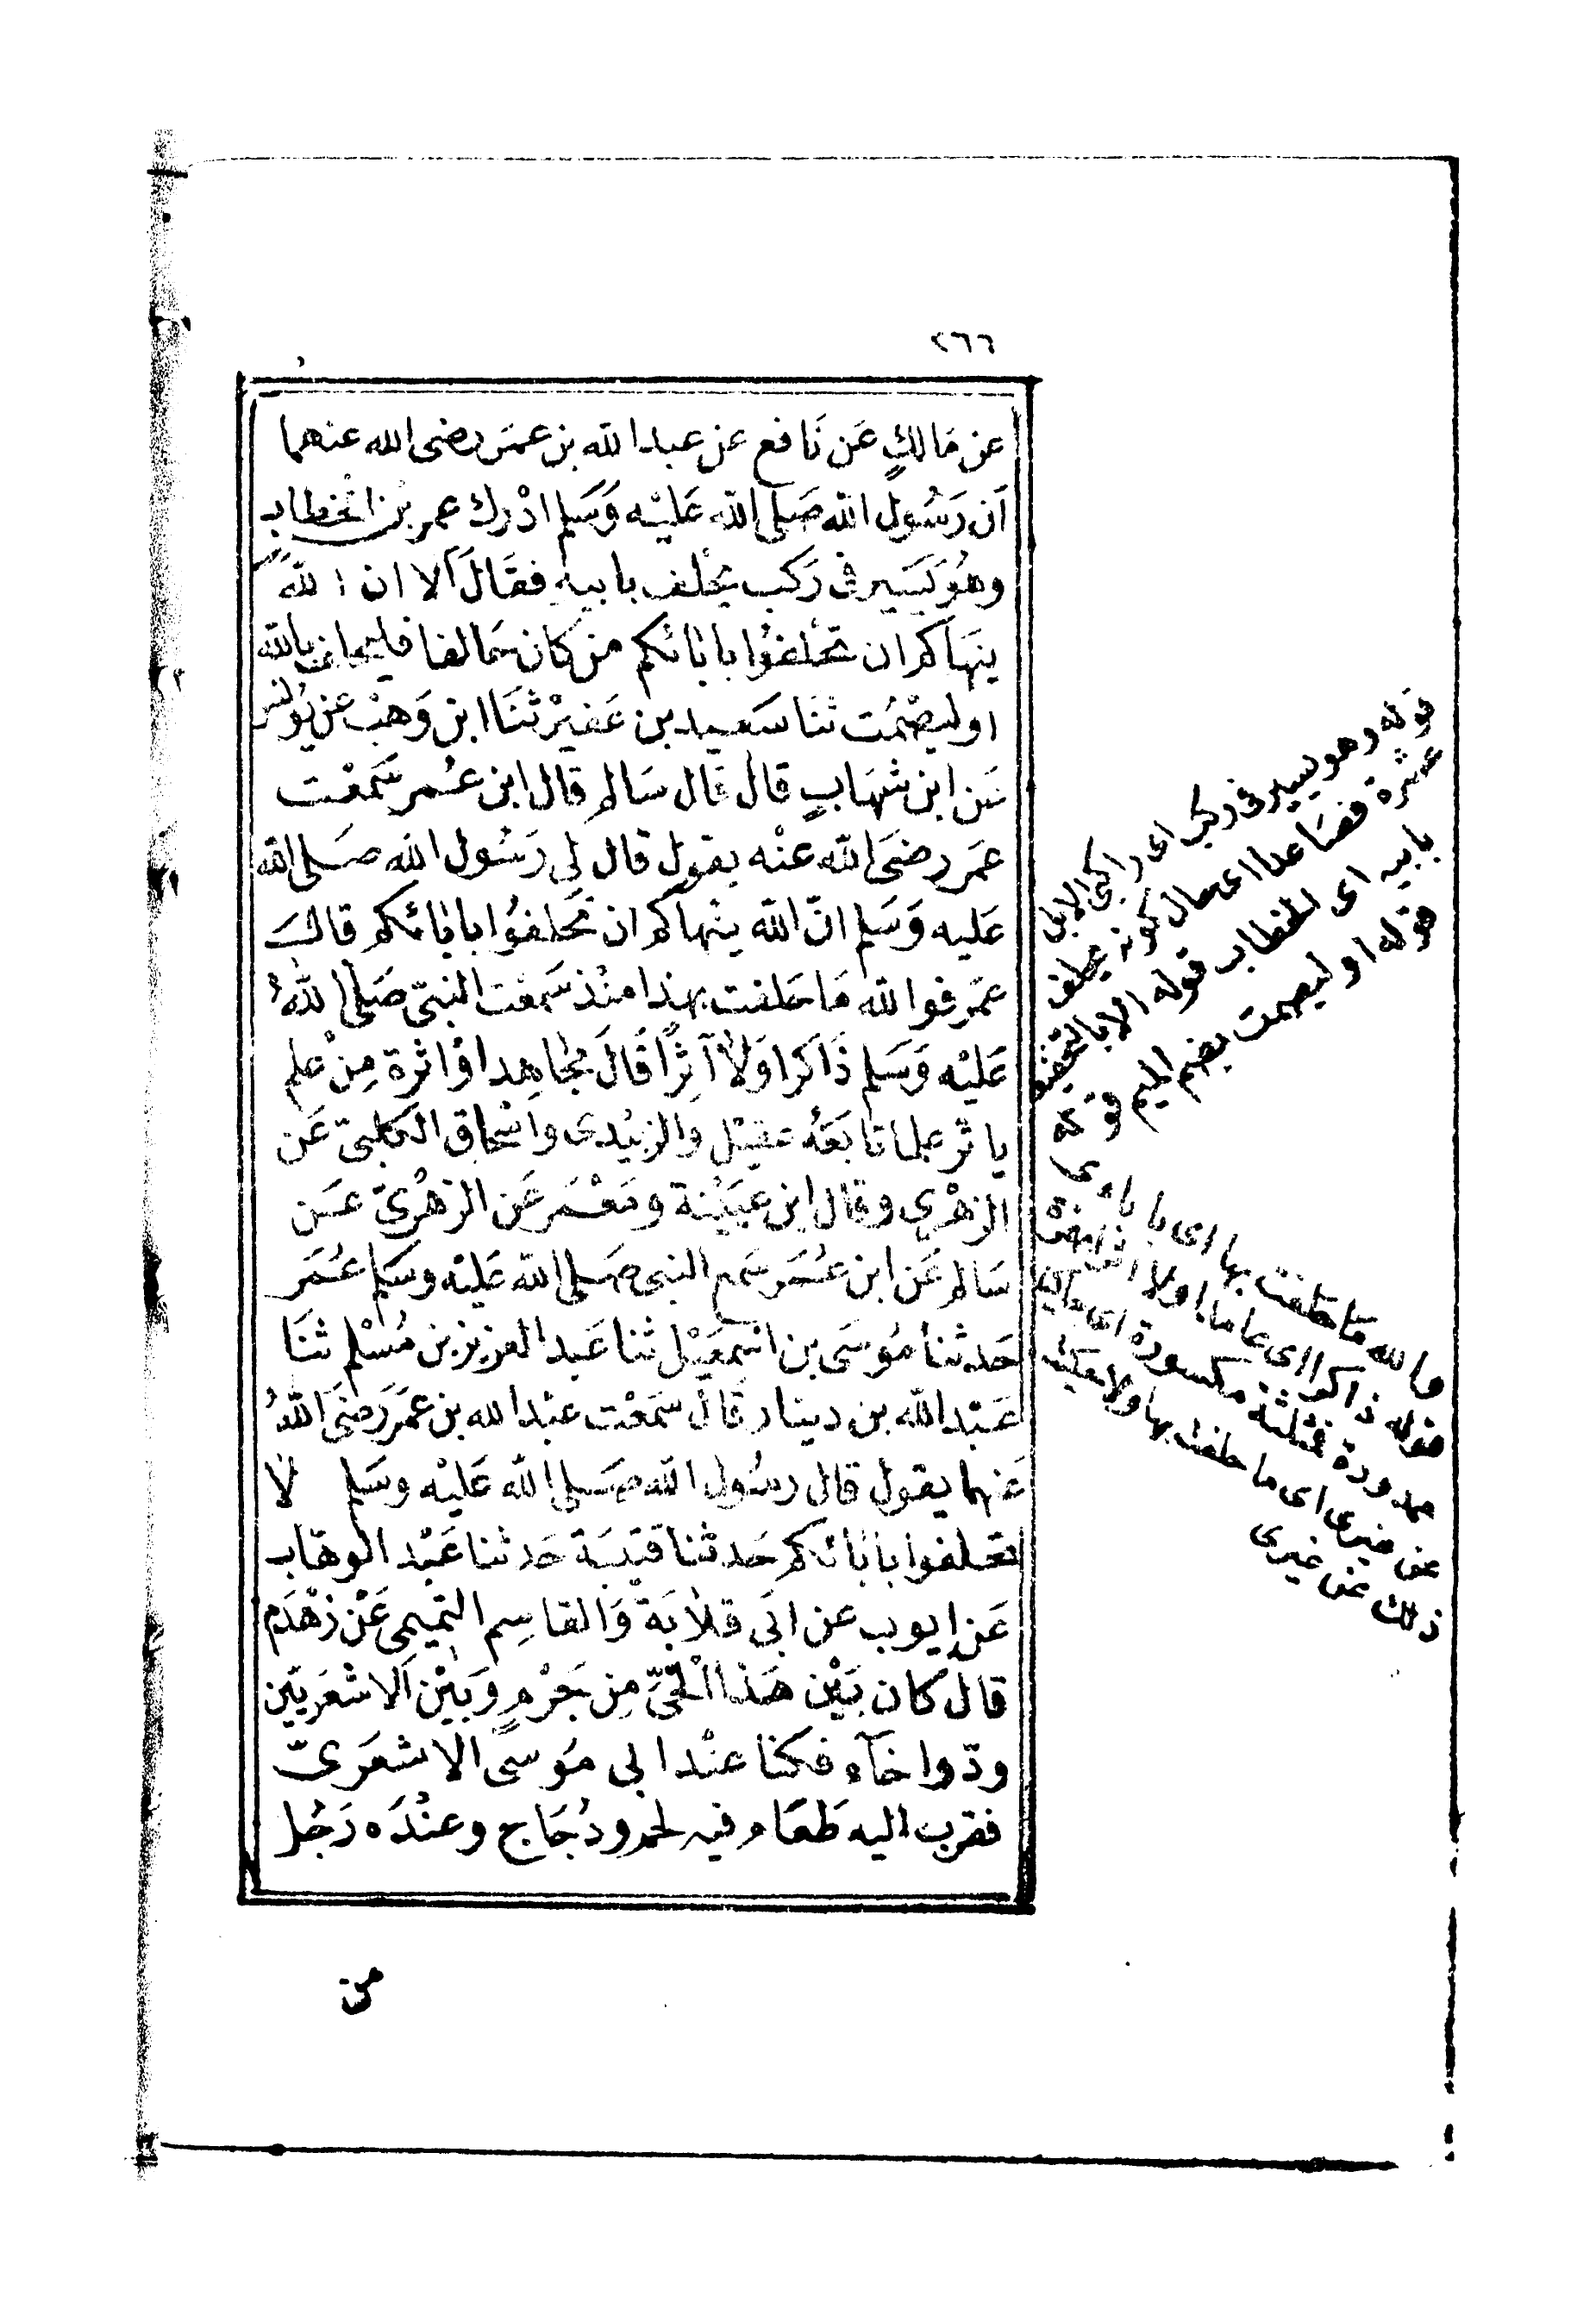 ٢٦٦
عن مَالكٍ عَن نَافع عن عبد الله بن عمَر رضى الله عنهما
اَن رَسُول الله صَلى الله عَليْه وَسَلم ادْرك عمر بْن الخطاب
وهُو يَسير فى رَكب يحْلف بابيهِ فقَالَ اَلا ان اللهَ
ينهَاكم ان تحْلفُوا بابَائكم من كان حَالفا فليحلف بالله
او ليصْمُت ثنَا سَعيد بن عَفيْر ثنَا ابن وَهْب عن يُونس
عَن ابن شهَابٍ قال قال سَالم قال ابن عُمر سَمعْت
عمَر رضىَ الله عنْه يقول قال لى رَسُول الله صَلى الله
عَليه وَسَلم انّ الله ينْهاكم ان تحَلفُوا بابَائكم قالَ
عمَر فوالله مَا حَلفت بهذا منْذ سَمعْت النبىّ صَلى اللهُ
عَليْه وَسَلم ذَاكرا وَلَا آثِرًا قَالَ مجَاهِد اوْ اثرة مِنْ علم
ياثر علما تابَعَهُ عقيْل والزبيْدى واسْحاق الكلبىّ عَن
الزهْرى وقال ابن عيَيْنة ومَعْمَر عَن الزهْرىّ عَن
سَالم عَن ابن عُمَر سَمع النبى صَلى الله عَليْه وسَلم عُمَر
حَدثنا مُوسَى بن اسْمعيْل ثنا عَبد العزيز بن مُسْلم ثنَا
عَبْد الله بن دينار قَال سَمعْت عبْد الله بن عمَر رَضىَ اللهُ
عَنهما يقول قال رسُول الله صَلى الله عَليْه وسَلم لَا
تحَلفوا بابَائكم حَدثنا قتيْبَة حَدثنا عَبْد الوهَّاب
عَن ايوب عن ابىَ قلَابَة وَالقاسِم التميمى عَنْ زهْدَم
قال كان بَيْن هَذا الْحَىّ مِن جَرْمٍ وَبيْن الاشْعَريّين
ودّ واخآء فكنا عنْد ابى مُوسَى الاشعَرىّ
فقرب اليه طَعَام فيه لحم ودُجَاج وعنْدَه رَجُل
من
قوله وهو يسير فى ركب اى راكبى الابل
عشرة فصَاعدا اى حال كونه يحلف
بابيه اى الخطاب قوله الا بالتخفيف
قوله او ليصمت بضم الميم قوله
والله مَا حَلفت بها اى بابى
قوله ذاكرا اى عامدا ولا اثرا بهمزة
ممدودة فمثلثة مكسورة اى حاكيا
عن غيرى اى ما حلفت بها ولا حكيت
ذلك عن غيرى